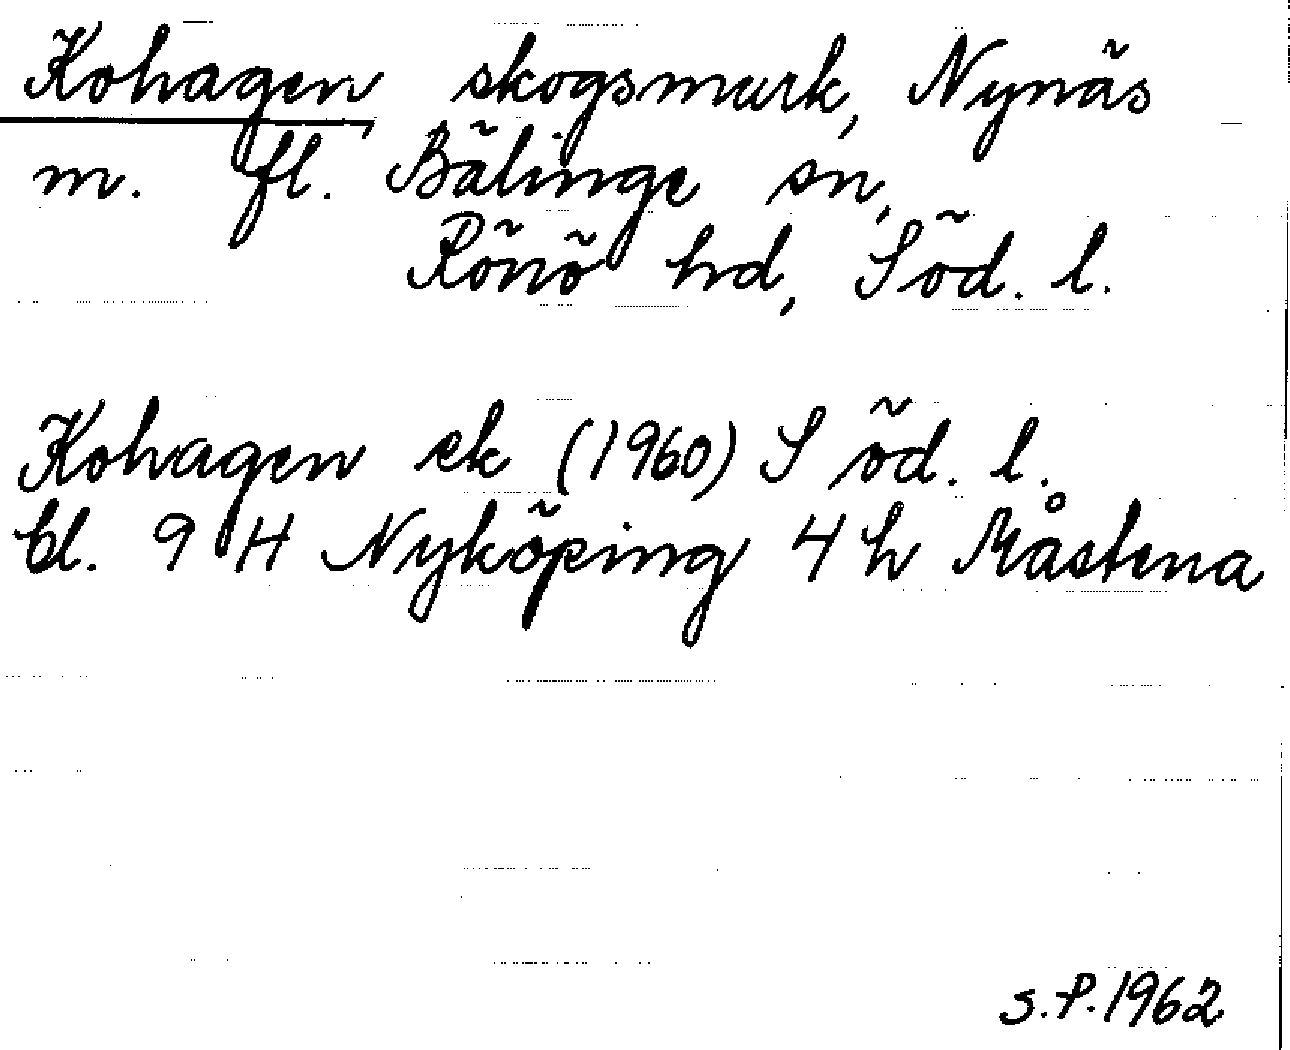 Kohagen, skogsmark, Nynäs
m. fl. Bälinge sn,
Rönö hd, Söd. l.
Kohagen ek (1960) Söd. l.
bl. 9 H Nyköping 4 h Måstena
S.P. 1962